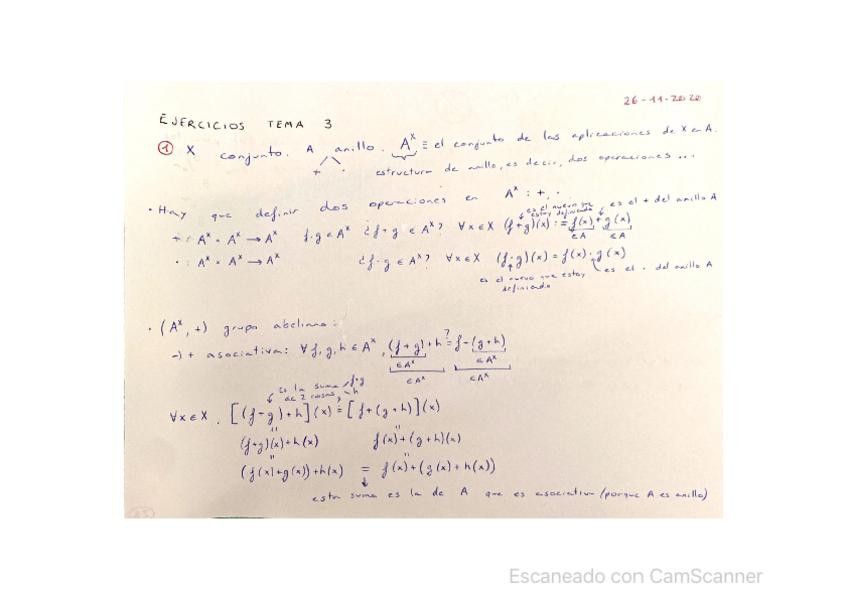 26-11-2020
EJERCICIOS TEMA 3
① X conjunto. A anillo. A^X ≡ el conjunto de las aplicaciones de X en A.
+ ·
estructura de anillo, es decir, dos operaciones ...
· Hay que definir dos operaciones en A^X : +, ·
es el nuevo que estoy definiendo
es el + del anillo A
+: A^X × A^X → A^X f,g ∈ A^X ¿f+g ∈ A^X? ∀x∈X (f+g)(x) := f(x)+g(x)
∈A ∈A
·: A^X × A^X → A^X ¿f·g ∈ A^X? ∀x∈X (f·g)(x) = f(x)·g(x)
es el nuevo que estoy definiendo
es el · del anillo A
· (A^X, +) grupo abeliano:
-) + asociativa: ∀f,g,h ∈ A^X, (f+g)+h ?= f+(g+h)
∈A^X ∈A^X
∈A^X ∈A^X
es la suma de 2 cosas, f+g h
∀x∈X. [(f+g)+h](x) = [f+(g+h)](x)
(f+g)(x)+h(x) f(x)+(g+h)(x)
(f(x)+g(x))+h(x) = f(x)+(g(x)+h(x))
esta suma es la de A que es asociativa (porque A es anillo)
Escaneado con CamScanner